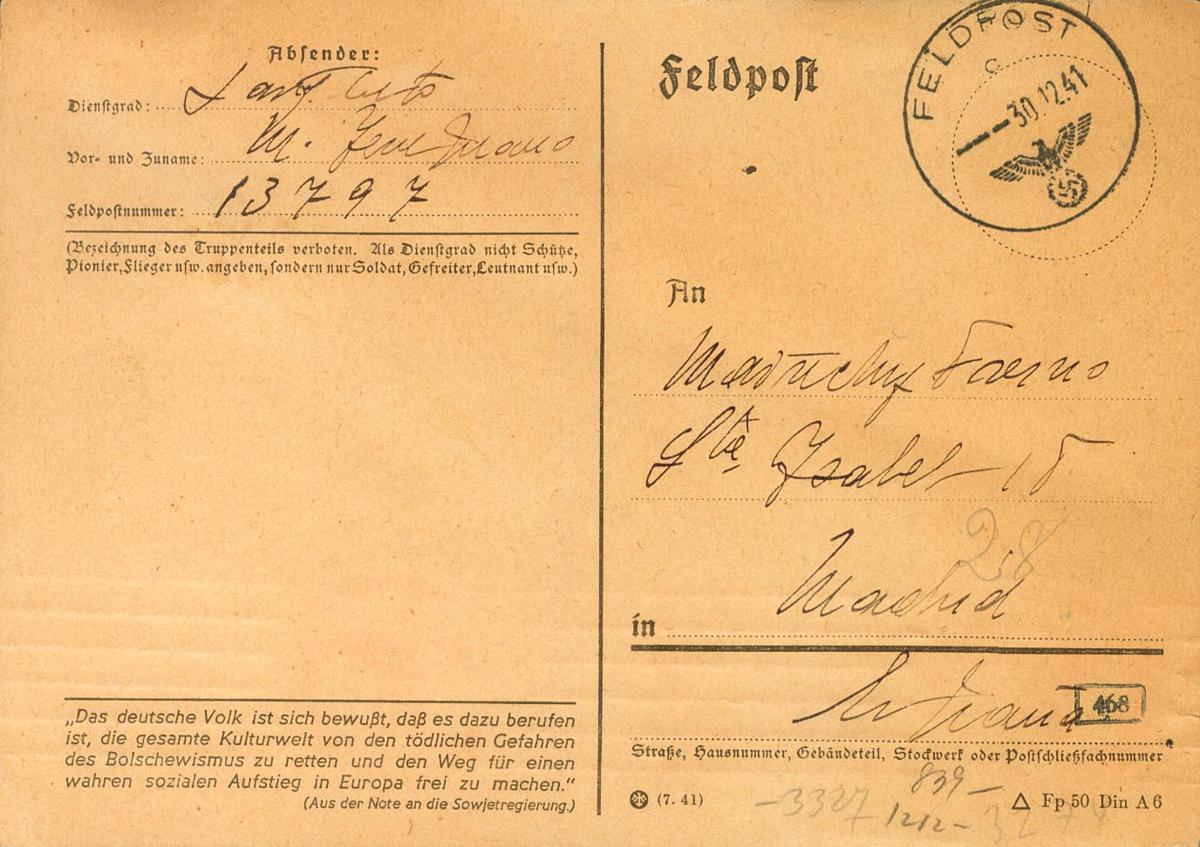 Absender:
Dienstgrad:
Vor- und Zuname: M.
Feldpostnummer: 13797
(Bezeichnung des Truppenteils verboten. Als Dienstgrad nicht Schütze,
Pionier, Flieger usw. angeben, sondern nur Soldat, Gefreiter, Leutnant usw.)
„Das deutsche Volk ist sich bewußt, daß es dazu berufen
ist, die gesamte Kulturwelt von den tödlichen Gefahren
des Bolschewismus zu retten und den Weg für einen
wahren sozialen Aufstieg in Europa frei zu machen.“
(Aus der Note an die Sowjetregierung.)
Feldpost
FELDPOST
c
30.12.41
An
Isabel 15
28
in Madrid
468
Straße, Hausnummer, Gebäudeteil, Stockwerk oder Postschließfachnummer
(7. 41)
Fp 50 Din A 6
839 –
– 3327
1212 –